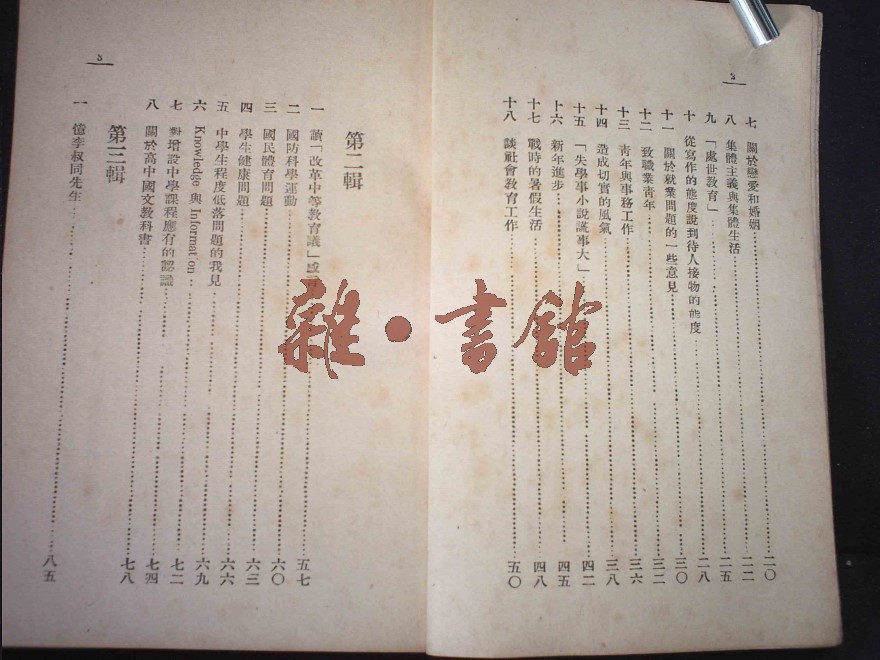 2
七 關於戀愛和婚姻 二〇
八 集體主義與集體生活 二二
九 「處世教育」 二五
十 從寫作的態度說到待人接物的態度 二八
十一 關於就業問題的一些意見 三〇
十二 致職業青年 三二
十三 青年與事務工作 三六
十四 造成切實的風氣 三八
十五 「失學事小說謊事大」 四二
十六 新年進步 四五
十七 戰時的暑假生活 四八
十八 談社會教育工作 五〇
3
第二輯
一 讀「改革中等教育議」感言 五七
二 國防科學運動 六〇
三 國民體育問題 六三
四 學生健康問題 六六
五 中學生程度低落問題的我見 六九
六 Knowledge 與 Information 七二
七 對增設中學課程應有的認識 七四
八 關於高中國文教科書 七八
第三輯
一 憶李叔同先生 八五
雜·書館